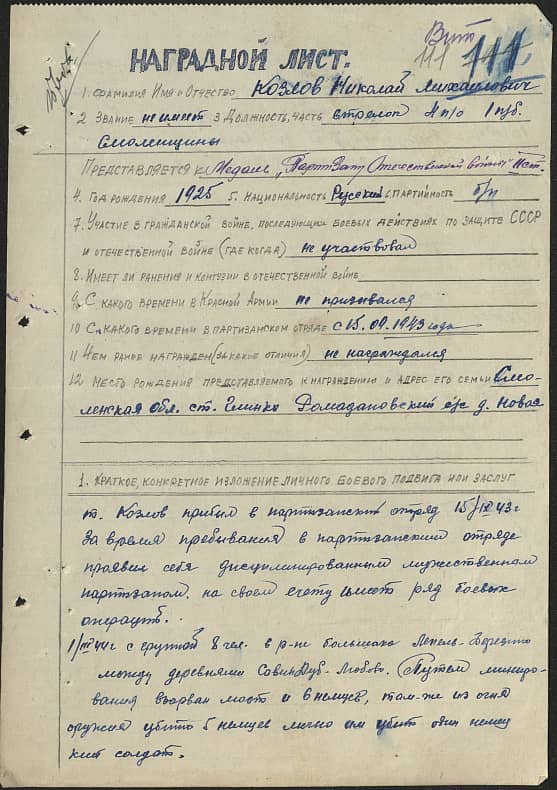 Вит
111 111.
НАГРАДНОЙ ЛИСТ.
1. Фамилия Имя и Отчество Козлов Николай Михайлович
2 Звание не имеет 3 Должность, часть стрелок 4 п/о 1 пб.
Смоленщины
Представляется к Медаль „Партизану Отечественной войны" IIст.
4. Год рождения 1925 5. Национальность Русский 6 Партийность б/п
7. Участие в гражданской войне, последующих боевых действиях по защите СССР
и отечественной войне (где когда) не участвовал
8. Имеет ли ранения и контузии в отечественной войне
9. С какого времени в Красной Армии не призывался
10 С какого времени в партизанском отряде с 15.09.1943 года
11 Чем ранее награжден (за какие отличия) не награждался
12 Место рождения представляемого к награждению и адрес его семьи Смо-
ленская обл. ст. Глинка Ромадановский с/с д. Новая
1. Краткое, конкретное изложение личного боевого подвига или заслуг
т. Козлов прибыл в партизанский отряд 15/IX 43 г
За время пребывания в партизанском отряде
проявил себя дисциплинированным мужественным
партизаном. на своем счету имеет ряд боевых
операций.
1/III 44 г с группой 8 чел. в р-не большака Лепель-Березино
между деревнями Савин Дуб-Любово. Путем миниро-
вания взорван мост и 6 немцев, там-же из огня
оружия убито 5 немцев лично им убит один немец
кий солдат.